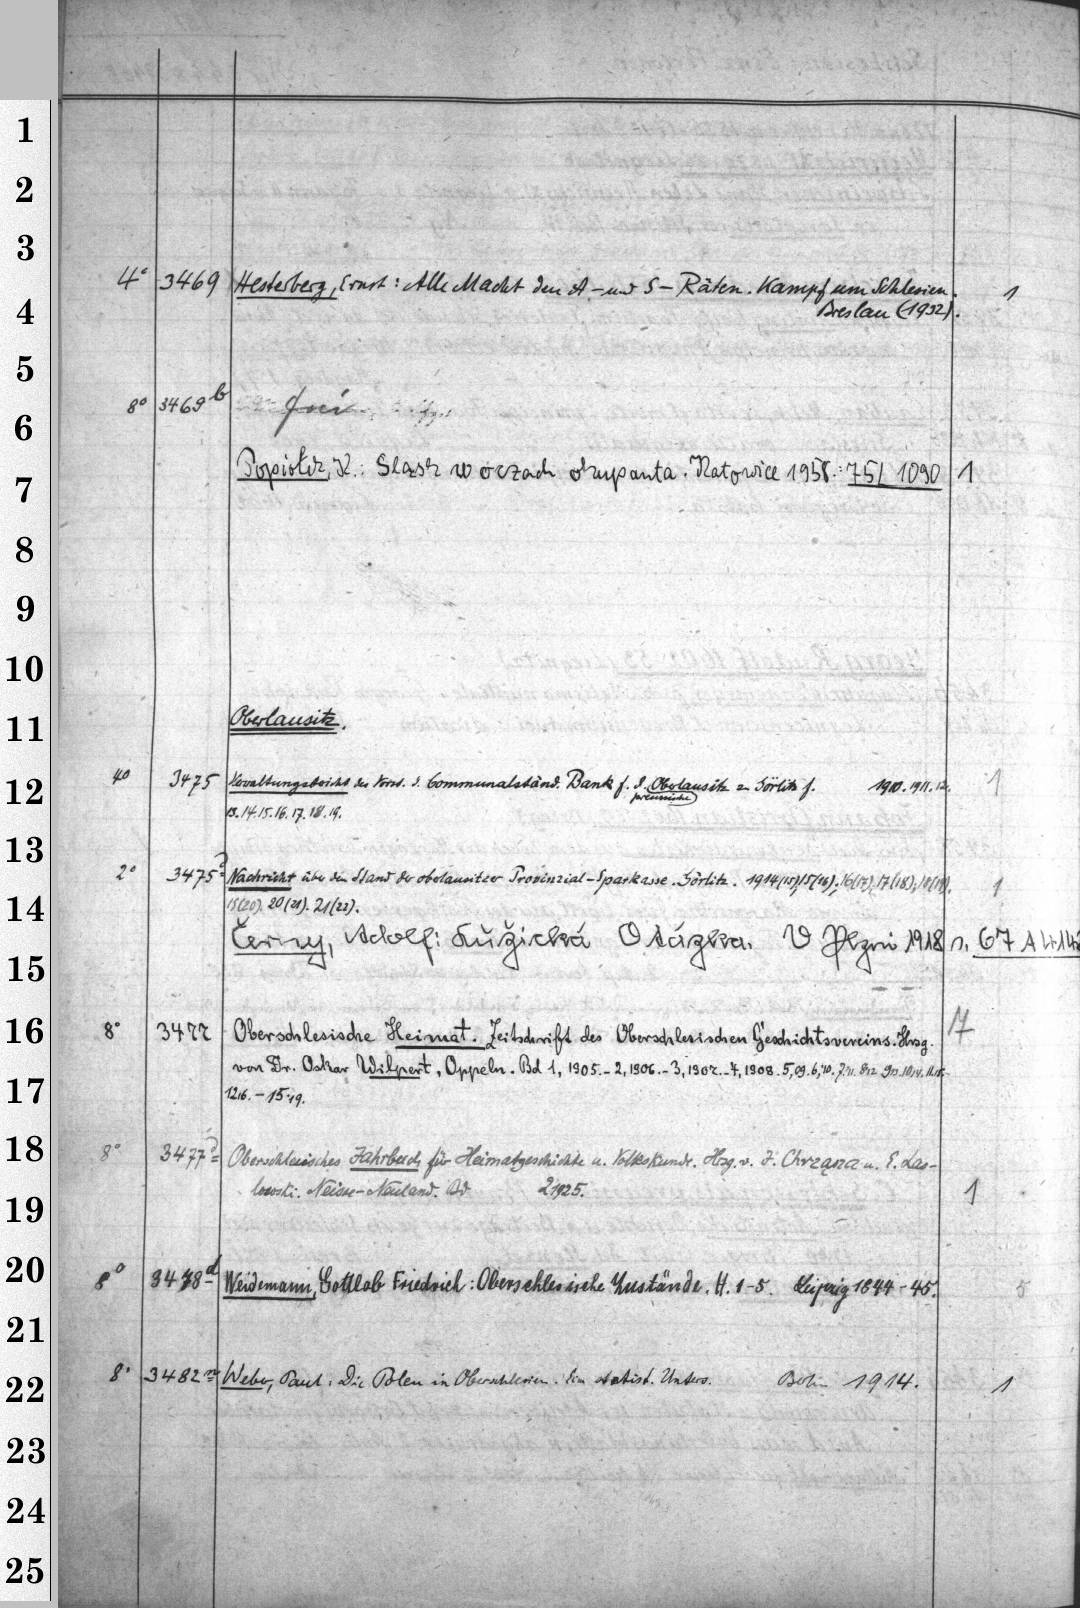 1
2
3
4° 3469 Hesterberg, Ernst: Alle Macht den A- und S-Räten. Kampf um Schlesien. 1
4 Breslau (1932).
5
8° 3469 b frei
6
Popiołek, K.: Śląsk w oczach okupanta. Katowice 1958. 75/ 1090 1
7
8
9
10
11 Oberlausitz.
12
4° 3475 Verwaltungsbericht des Vorst. d. Communalständ. Bank f. d. Oberlausitz zu Görlitz f. 1910. 1911. 12. 1
preussische
13. 14. 15. 16. 17. 18. 19.
13
2° 3475 Nachricht über den Stand der oberlausitzer Provinzial-Sparkasse. Görlitz. 1914(15), 15(16), 16(17), 17(18), 18(19), 1
14 20(21). 21(22).
Černy, Adolf: Lužická Otázka. V Plzni 1918
15
16
8° 3477 Oberschlesische Heimat. Zeitschrift des Oberschlesischen Geschichtsvereins. Hrsg. 7
von Dr. Oskar Wilpert, Oppeln. Bd 1, 1905.- 2, 1906.- 3, 1907.- 4, 1908. 5, 09. 6, 10.
17
12 16. - 15 19.
18
8° 3477 Oberschlesisches Jahrbuch für Heimatgeschichte u. Volkskunde. Hrsg. v. J. Chrząszcz u. E. Las-
lowski. Neisse-Neuland. Bd 2 1925. 1
19
20
8° 3478 d Weidemann, Gottlob Friedrich: Oberschlesische Zustände. H. 1-5. Leipzig 1844-45. 5
21
22
8° 3482 m Weber, Paul: Die Polen in Oberschlesien. Ein statist. Unters. Berlin 1914. 1
23
24
25